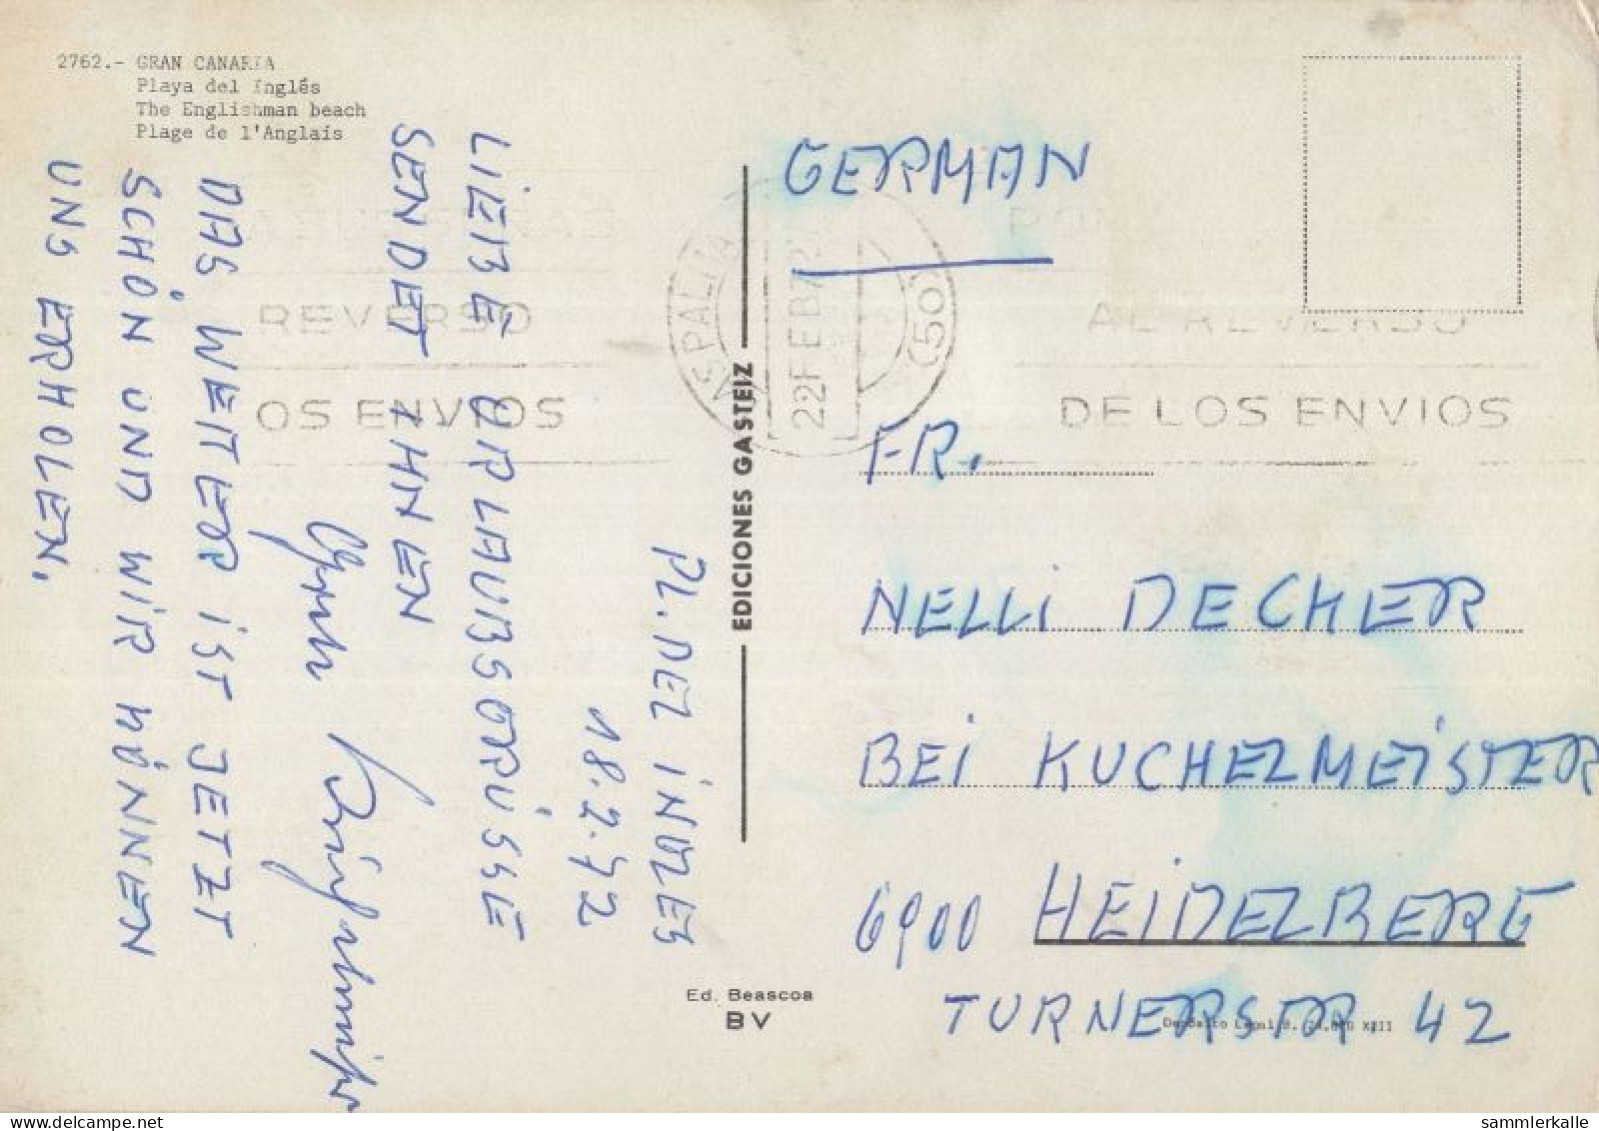 2762.- GRAN CANARIA
Playa del Inglés
The Englishman beach
Plage de l'Anglais
PL. DEL INGLES
18.2.72
LIEBE URLAUBSGRÜSSE
SENDET IHNEN
DAS WETTER IST JETZT
SCHÖN UND WIR KÖNNEN
UNS ERHOLEN.
EDICIONES GASTEIZ
Ed. Beascoa
BV
GERMAN
REVERSO
OS ENVIOS
22 FEB 72
(50)
AL REVERSO
DE LOS ENVIOS
FR.
NELLI DECHER
BEI KUCHELMEISTER
6900 HEIDELBERG
TURNERSTR. 42
Depósito Legal B. XIII
sammlerkalle